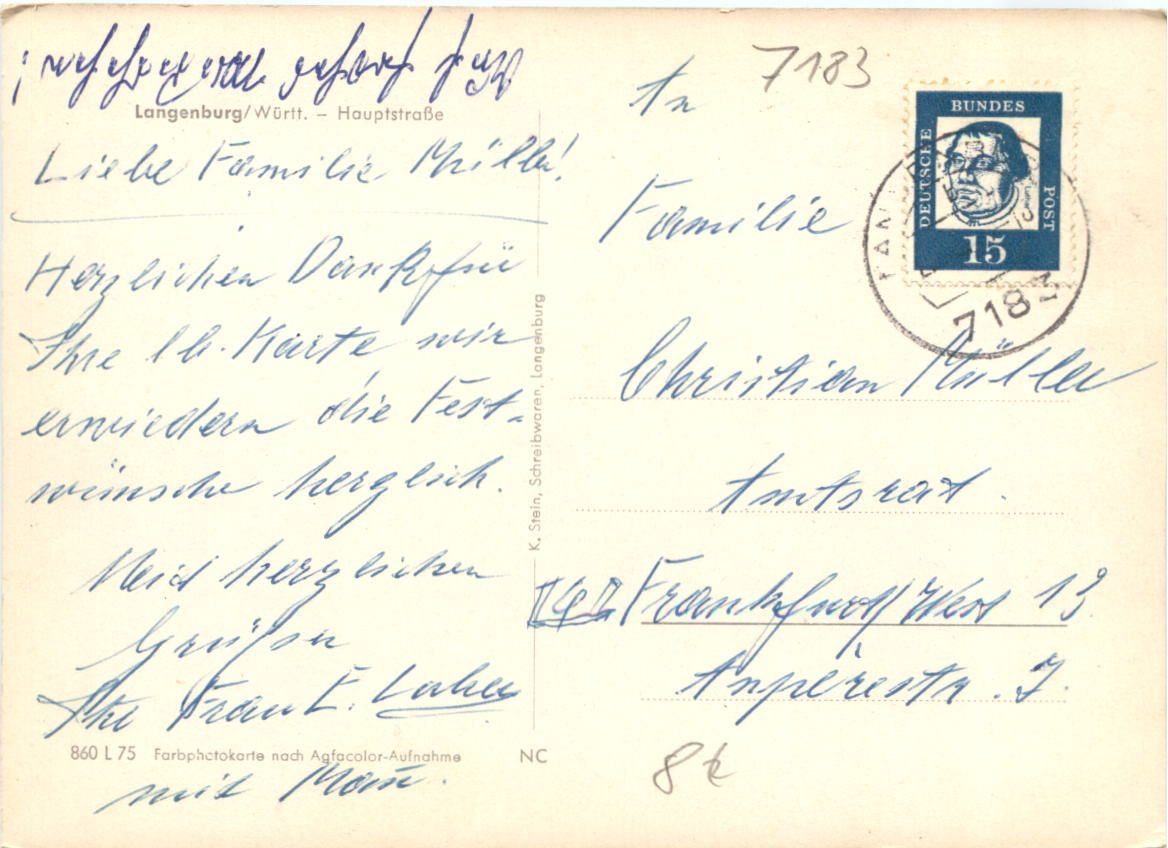 Langenburg/Württ. – Hauptstraße
Liebe Familie Müller!
Herzlichen Dank für
Ihre lb. Karte wir
erwiedern die Fest-
wünsche herzlich.
Mit herzlichen
Grüßen
Ihre Frau E.
860 L 75 Farbphotokarte nach Agfacolor-Aufnahme NC
mit Mann.
K. Stein, Schreibwaren, Langenburg
7183
An
Familie
Christian Müller
Amtsrat.
Frankfurt/West 13
Ampèrestr. 7.
8
DEUTSCHE BUNDES POST
15
7183